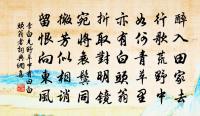 醉入田家去
行歌荒野中
如何青草裏
亦有白頭翁
折取對明鏡
宛將衰鬢同
微芳似相誚
留恨向東風
李白見野草中有曰白
頭翁者詞典網